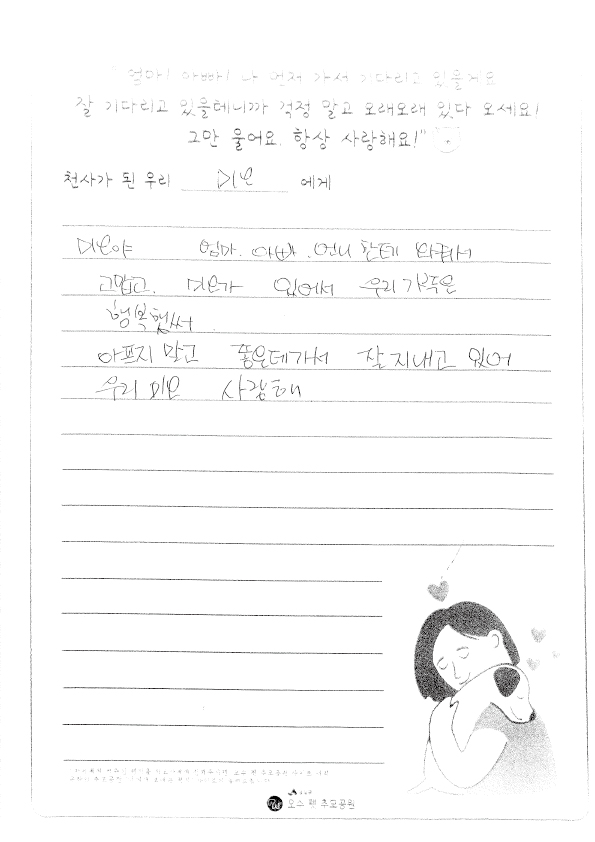 "엄마! 아빠! 나 먼저 가서 기다리고 있을게요
잘 기다리고 있을테니까 걱정 말고 오래오래 있다 오세요!
그만 울어요. 항상 사랑해요!"
천사가 된 우리 미오 에게
미오야 엄마. 아빠. 언니 한테 와줘서
고맙고. 미오가 있어서 우리가족은
행복했써
아프지 말고 좋은데가서 잘지내고 있어
우리 미오 사랑해
오수 펫 추모공원